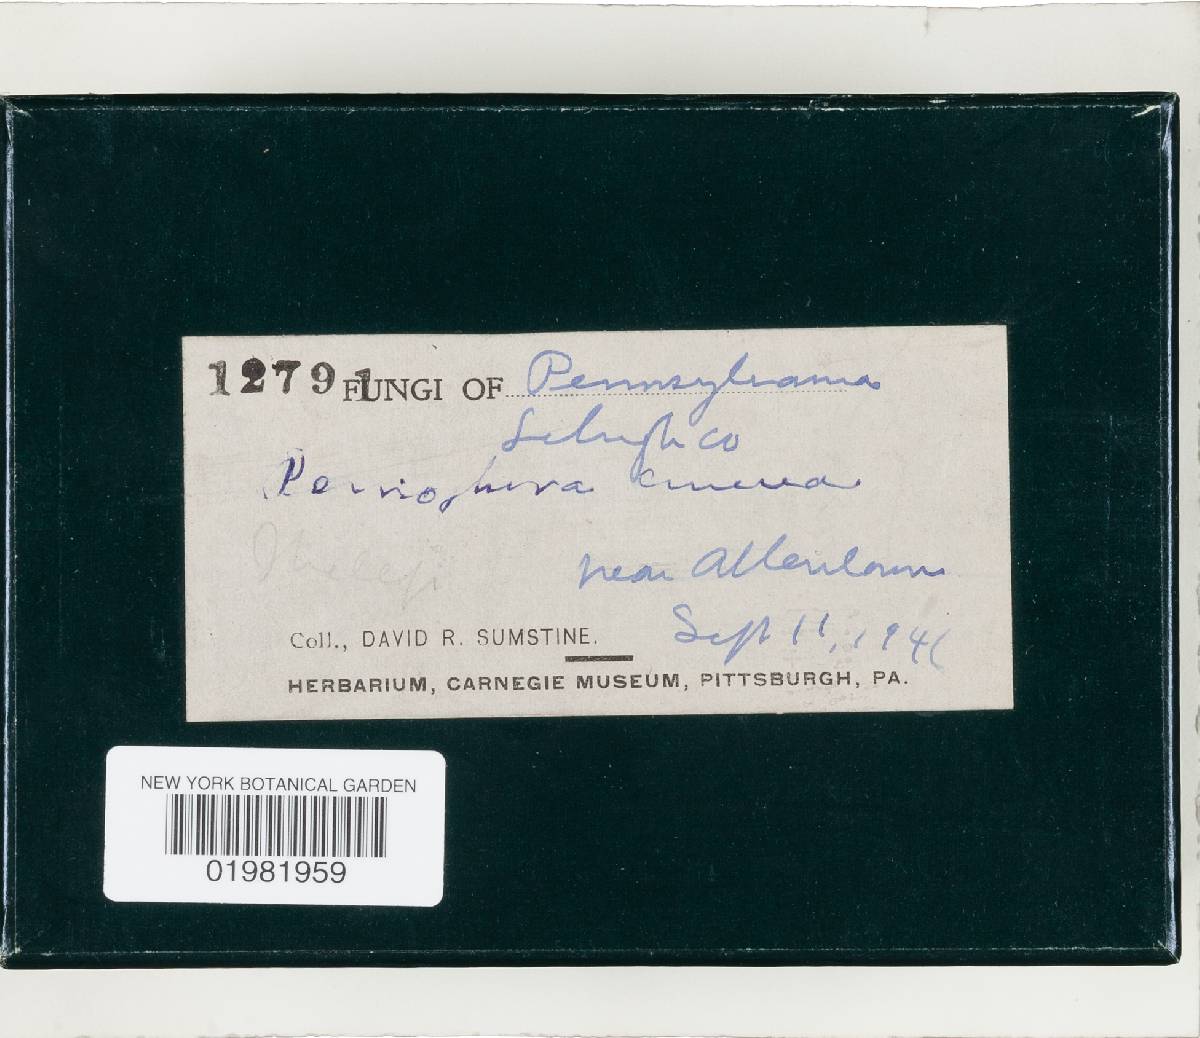 12791 FUNGI OF Pennsylvania
Lehigh co
Peniophora cinerea
near Allentown
Coll., DAVID R. SUMSTINE. Sept 11, 1941
HERBARIUM, CARNEGIE MUSEUM, PITTSBURGH, PA.
NEW YORK BOTANICAL GARDEN
01981959